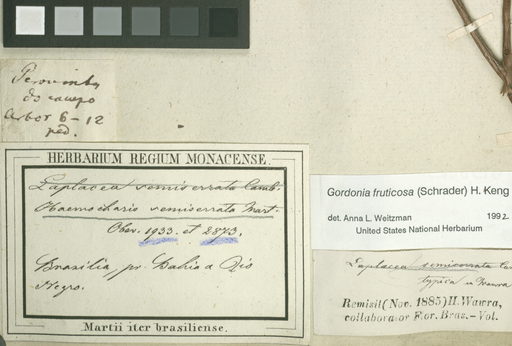 do campo
Arbor 6-12
ped.
HERBARIUM REGIUM MONACENSE.
Laplacea semiserrata Camb.
Haemocharis semiserrata Mart.
Obs. 1933. et 2873.
Brasilia, pr. Bahia a Rio
Negro.
Martii iter brasiliense.
Gordonia fruticosa (Schrader) H. Keng
det. Anna L. Weitzman 1992
United States National Herbarium
Laplacea semiserrata Ca
typica m Wawra
Remisit (Nov. 1885) H. Wawra,
collaborator Flor. Bras.-Vol.